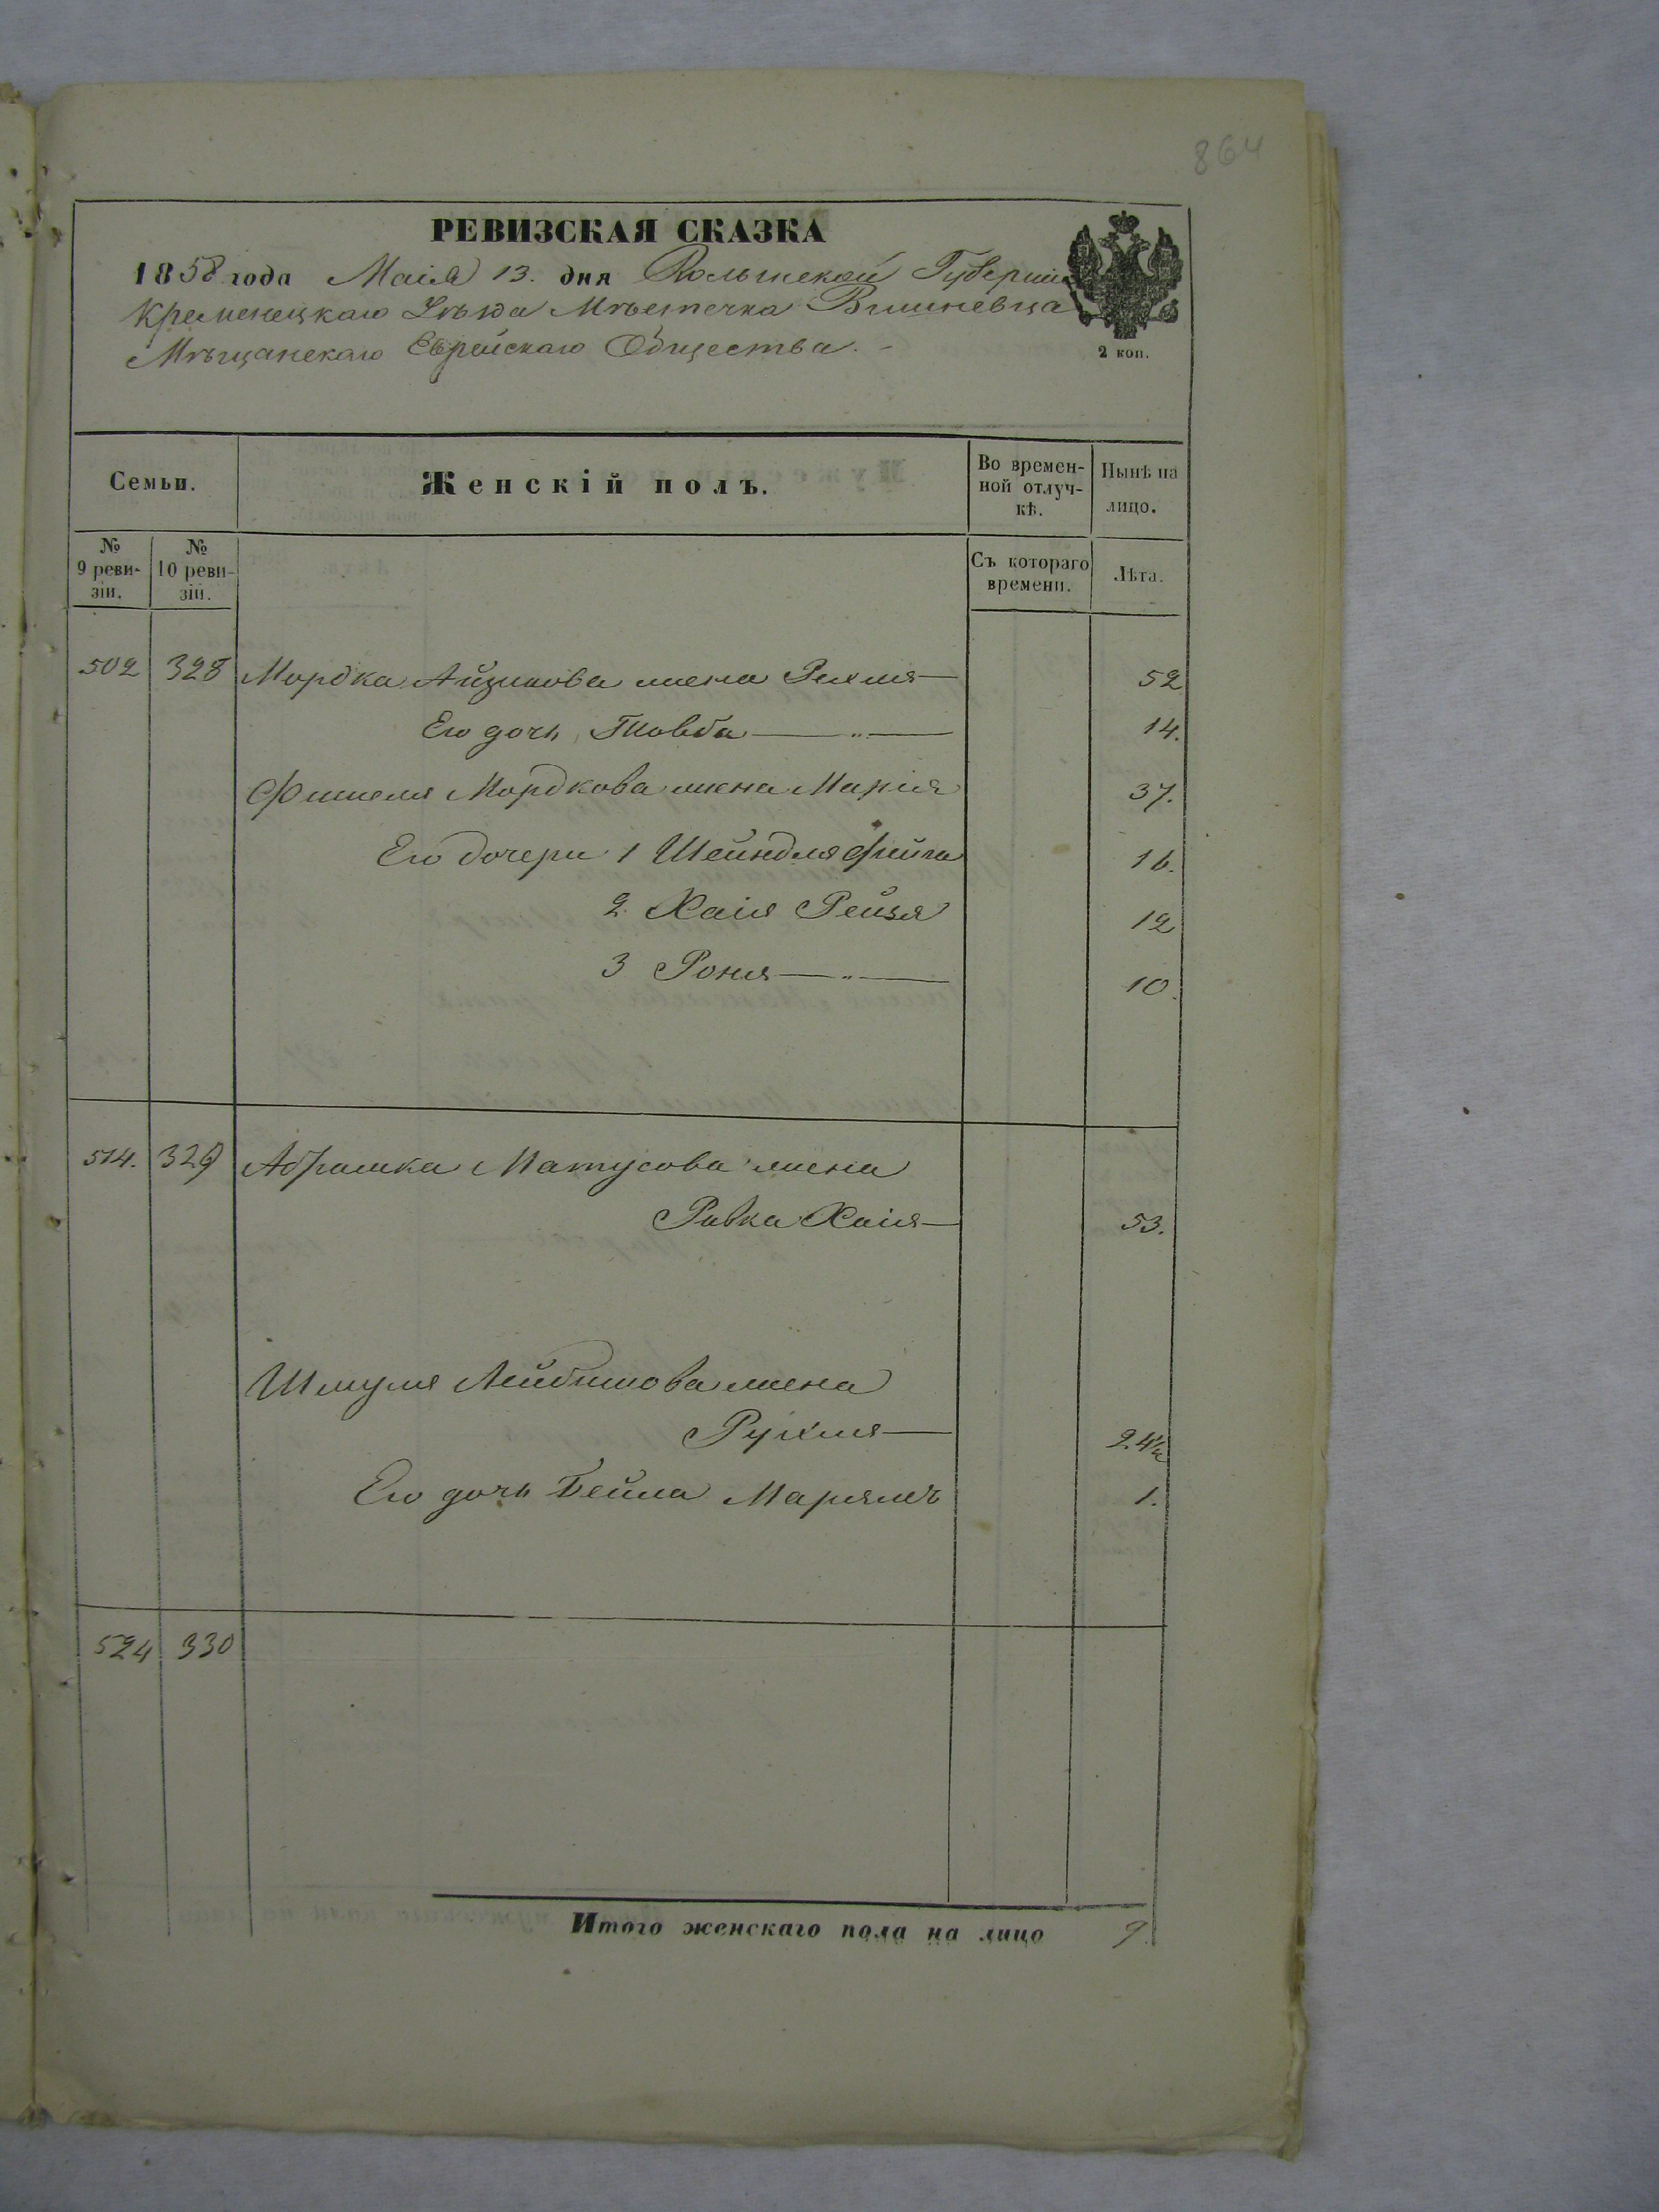 864
РЕВИЗСКАЯ СКАЗКА
1858 года Маія 13. дня Волынской Губерніи
Кременецкаго Уѣзда Мѣстечка Вишневца
Мѣщанскаго Еврейскаго Общества.
2 коп.
Семьи. Женскій полъ. Во времен-ной отлуч-кѣ. Нынѣ на лицо.
№ 9 реви-зіи. № 10 реви-зіи. Съ котораго времени. Лѣта.
502 328 Мордка Айзикова жена Рихля 52
Его дочь Товба 14.
Фишеля Мордкова жена Марія 37.
Его дочери 1 Шейндля Фейга 16.
2 Хаія Рейзя 12
3 Роня 10.
514. 329 Абрамка Матусова жена
Ривка Хаія 53.
Шмуля Лейбишова жена
Рухля 24½
Его дочь Бейла Маріямъ 1.
524 330
Итого женскаго пола на лицо 9.